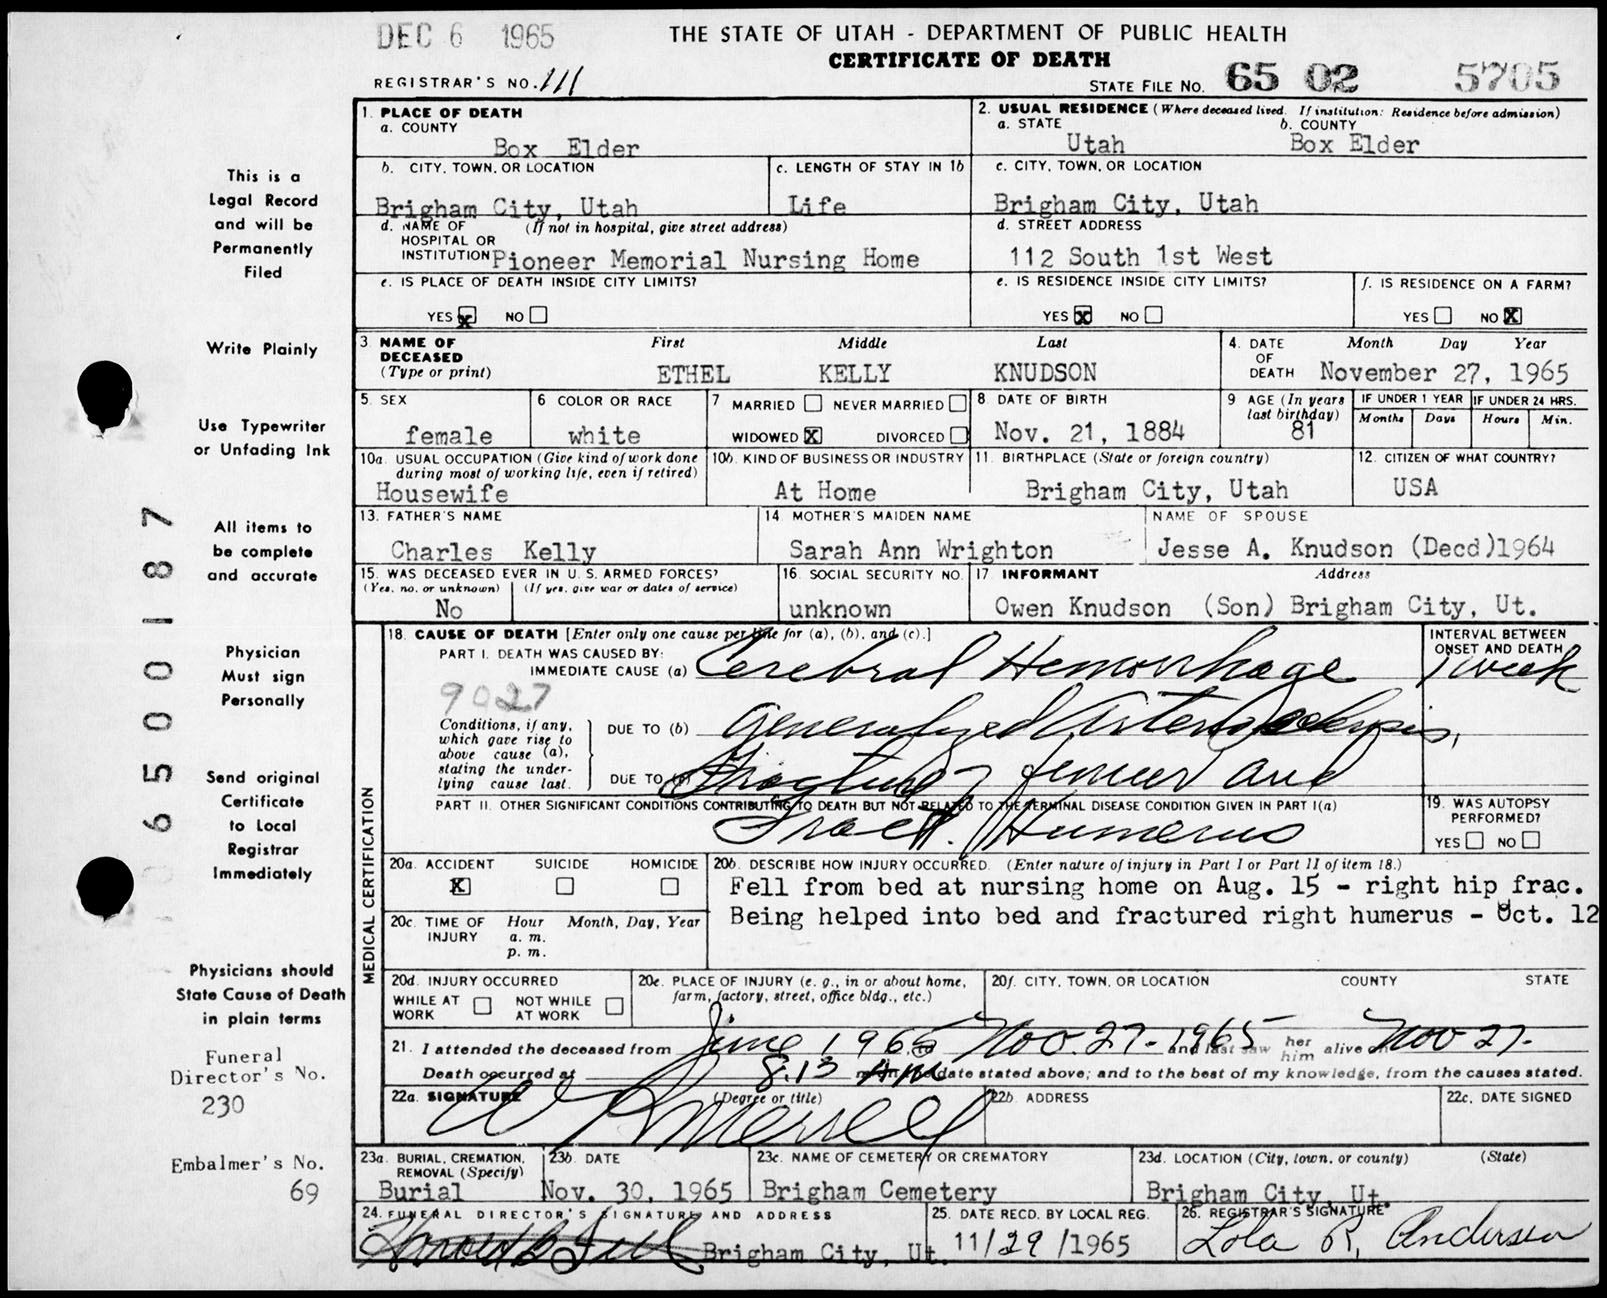 DEC 6 1965
THE STATE OF UTAH - DEPARTMENT OF PUBLIC HEALTH
CERTIFICATE OF DEATH
REGISTRAR'S NO. 111
STATE FILE NO. 65 02 5705
This is a
Legal Record
and will be
Permanently
Filed
Write Plainly
Use Typewriter
or Unfading Ink
All items to
be complete
and accurate
Physician
Must sign
Personally
Send original
Certificate
to Local
Registrar
Immediately
Physicians should
State Cause of Death
in plain terms
Funeral
Director's No.
230
Embalmer's No.
69
6500187
1. PLACE OF DEATH
a. COUNTY
Box Elder
2. USUAL RESIDENCE (Where deceased lived. If institution: Residence before admission)
a. STATE b. COUNTY
Utah Box Elder
b. CITY, TOWN, OR LOCATION
Brigham City, Utah
c. LENGTH OF STAY IN 1b
Life
c. CITY, TOWN, OR LOCATION
Brigham City, Utah
d. NAME OF HOSPITAL OR INSTITUTION (If not in hospital, give street address)
Pioneer Memorial Nursing Home
d. STREET ADDRESS
112 South 1st West
e. IS PLACE OF DEATH INSIDE CITY LIMITS?
YES X NO
e. IS RESIDENCE INSIDE CITY LIMITS?
YES X NO
f. IS RESIDENCE ON A FARM?
YES NO X
3. NAME OF DECEASED (Type or print)
First Middle Last
ETHEL KELLY KNUDSON
4. DATE OF DEATH Month Day Year
November 27, 1965
5. SEX
female
6 COLOR OR RACE
white
7 MARRIED NEVER MARRIED
WIDOWED X DIVORCED
8 DATE OF BIRTH
Nov. 21, 1884
9 AGE (In years last birthday)
81
IF UNDER 1 YEAR
Months Days
IF UNDER 24 HRS.
Hours Min.
10a. USUAL OCCUPATION (Give kind of work done during most of working life, even if retired)
Housewife
10b. KIND OF BUSINESS OR INDUSTRY
At Home
11. BIRTHPLACE (State or foreign country)
Brigham City, Utah
12. CITIZEN OF WHAT COUNTRY?
USA
13. FATHER'S NAME
Charles Kelly
14 MOTHER'S MAIDEN NAME
Sarah Ann Wrighton
NAME OF SPOUSE
Jesse A. Knudson (Decd)1964
15. WAS DECEASED EVER IN U. S. ARMED FORCES?
(Yes, no, or unknown) (If yes, give war or dates of service)
No
16. SOCIAL SECURITY NO.
unknown
17 INFORMANT Address
Owen Knudson (Son) Brigham City, Ut.
MEDICAL CERTIFICATION
18. CAUSE OF DEATH [Enter only one cause per line for (a), (b), and (c).]
PART I. DEATH WAS CAUSED BY:
IMMEDIATE CAUSE (a) Cerebral Hemorrhage
INTERVAL BETWEEN ONSET AND DEATH
1 week
9027
Conditions, if any, which gave rise to above cause (a), stating the underlying cause last.
DUE TO (b) Generalized Arteriosclerosis,
DUE TO (c) Fracture femur and
PART II. OTHER SIGNIFICANT CONDITIONS CONTRIBUTING TO DEATH BUT NOT RELATED TO THE TERMINAL DISEASE CONDITION GIVEN IN PART I(a)
Fract. Humerus
19. WAS AUTOPSY PERFORMED?
YES NO
20a. ACCIDENT SUICIDE HOMICIDE
X
20b. DESCRIBE HOW INJURY OCCURRED. (Enter nature of injury in Part I or Part II of item 18.)
Fell from bed at nursing home on Aug. 15 - right hip frac.
Being helped into bed and fractured right humerus - Oct. 12
20c. TIME OF INJURY Hour a. m. p. m. Month, Day, Year
20d. INJURY OCCURRED
WHILE AT WORK NOT WHILE AT WORK
20e. PLACE OF INJURY (e. g., in or about home, farm, factory, street, office bldg., etc.)
20f. CITY, TOWN, OR LOCATION COUNTY STATE
21. I attended the deceased from June 1965 to Nov. 27-1965 and last saw her him alive on Nov 27.
Death occurred at 8.13 AM date stated above; and to the best of my knowledge, from the causes stated.
22a. SIGNATURE (Degree or title)
Merrell
22b. ADDRESS
22c. DATE SIGNED
23a. BURIAL, CREMATION, REMOVAL (Specify)
Burial
23b. DATE
Nov. 30, 1965
23c. NAME OF CEMETERY OR CREMATORY
Brigham Cemetery
23d. LOCATION (City, town, or county) (State)
Brigham City, Ut.
24. FUNERAL DIRECTOR'S SIGNATURE AND ADDRESS
Brigham City, Ut.
25. DATE RECD. BY LOCAL REG.
11/29/1965
26. REGISTRAR'S SIGNATURE
Lola R. Andersen